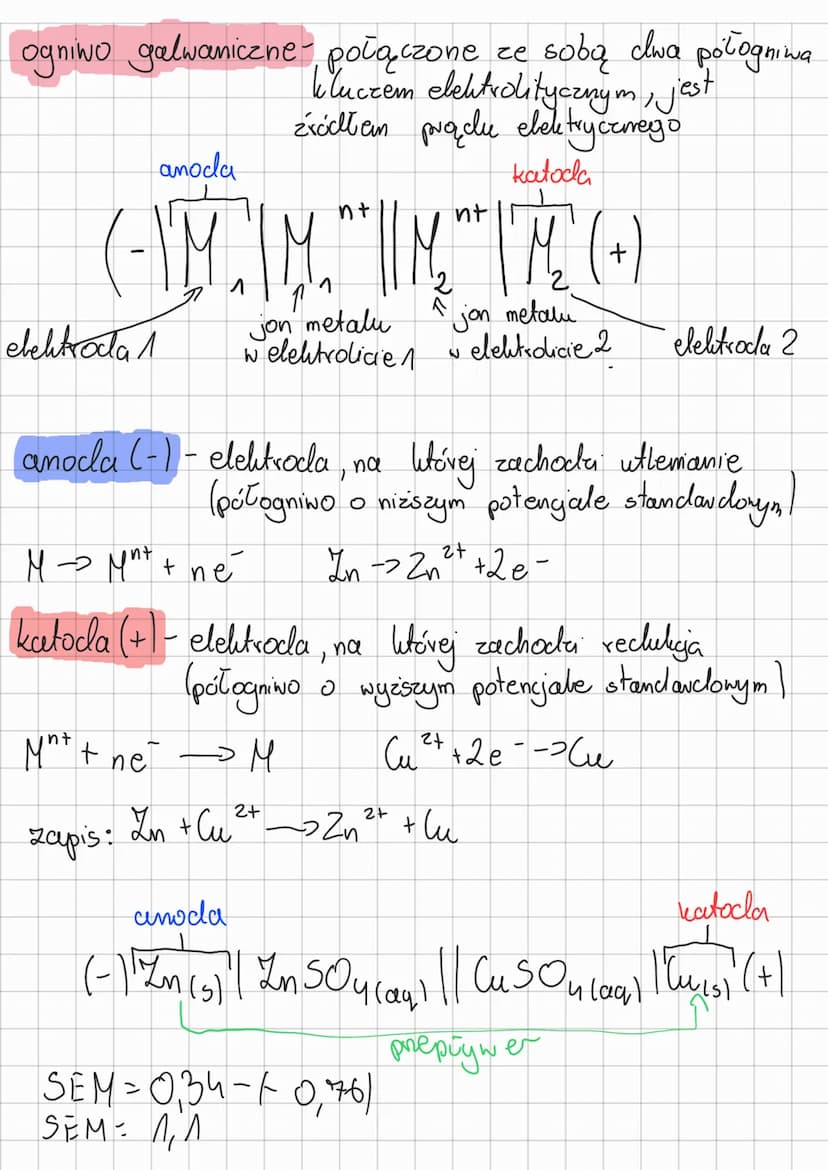 ogniwo galwaniczne - połączone ze sobą dwa półogniwa
kluczem elektrolitycznym, jest
źródłem prądu elektrycznego
anoda katoda
(-) M₁ | M₁ⁿ⁺ || M₂ⁿ⁺ | M₂ (+)
elektroda 1 jon metalu w elektrolicie 1 jon metalu w elektrolicie 2 elektroda 2
anoda (-) - elektroda, na której zachodzi utlenianie
(półogniwo o niższym potencjale standardowym)
M → Mⁿ⁺ + ne⁻ Zn → Zn²⁺ + 2e⁻
katoda (+) - elektroda, na której zachodzi redukcja
(półogniwo o wyższym potencjale standardowym)
Mⁿ⁺ + ne⁻ → M Cu²⁺ + 2e⁻ → Cu
zapis: Zn + Cu²⁺ → Zn²⁺ + Cu
anoda katoda
(-) Zn(s) | ZnSO₄(aq) || CuSO₄(aq) | Cu(s) (+)
przepływ e⁻
SEM = 0,34 - (-0,76)
SEM = 1,1